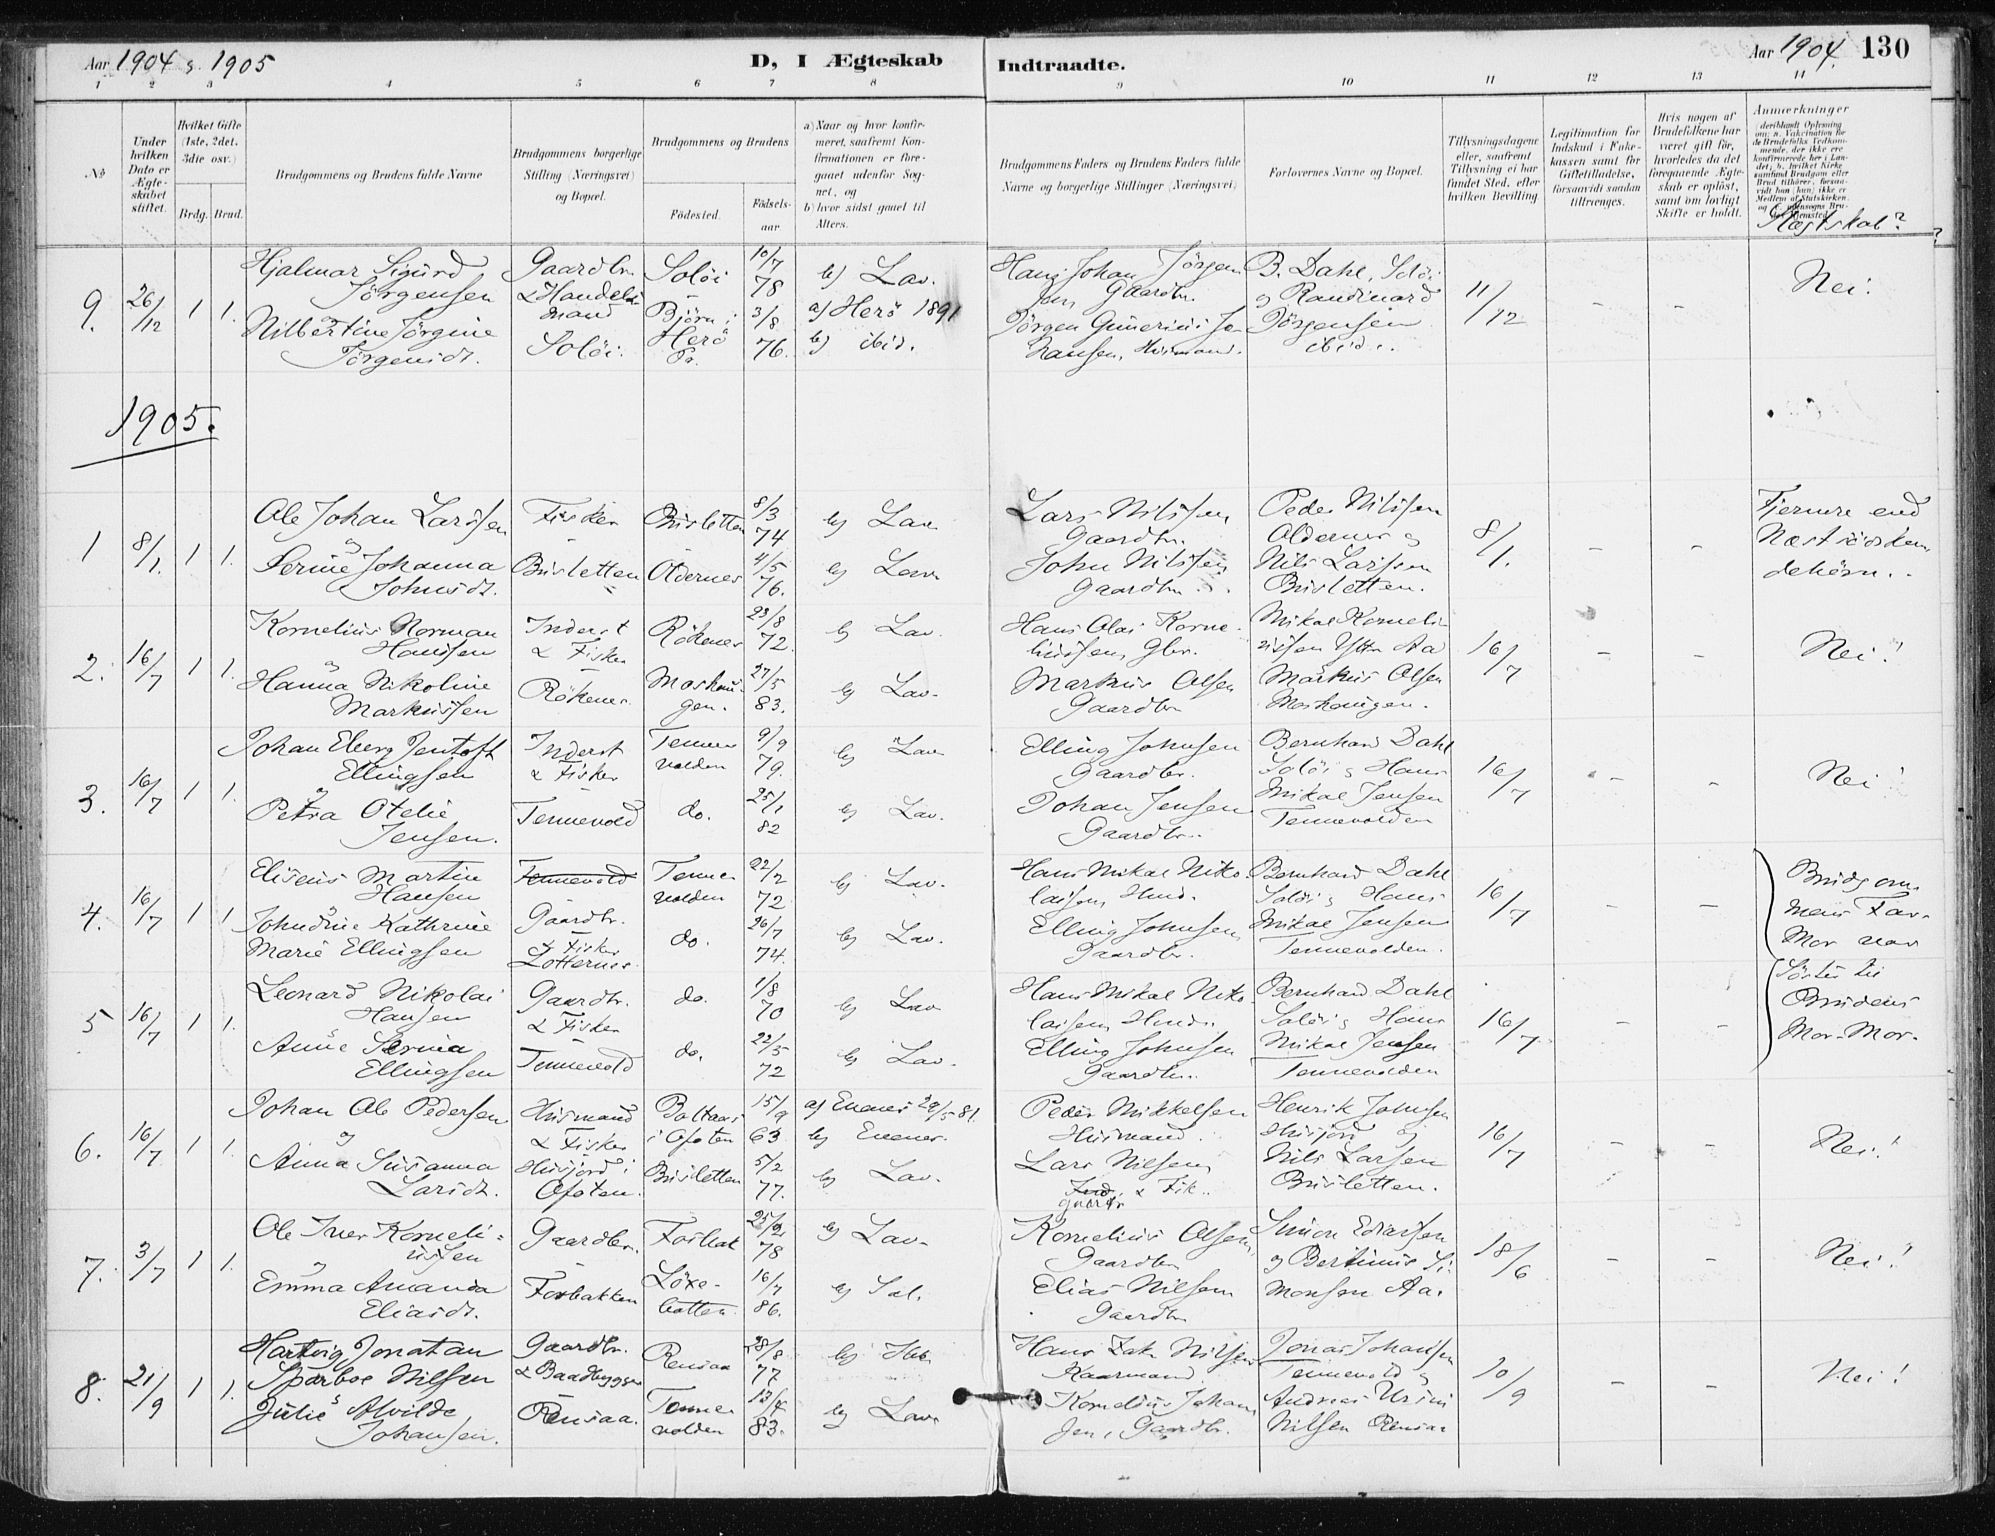 Aar 1904 & 1905
D, I Ægteskab Indtraadte.
Aar 1904. 130
1 2 3 4 5 6 7 8 9 10 11 12 13 14
No
Under hvilken Dato er Ægteskabet stiftet.
Hvilket Gifte (1ste, 2det, 3die osv.)
Brdg. Brud.
Brudgommens og Brudens fulde Navne
Brudgommens borgerlige Stilling (Næringsvei) og Bopæl.
Brudgommens og Brudens
Fødested. Fødselsaar.
a) Naar og hvor konfirmeret, saafremt Konfirmationen er foregaaet udenfor Sognet, og
b) hvor sidst gaaet til Alters.
Brudgommens Faders og Brudens Faders fulde Navne og borgerlige Stillinger (Næringsvei)
Forlovernes Navne og Bopæl.
Tillysningsdagene eller, saafremt Tillysning ei har fundet Sted, efter hvilken Bevilling.
Legitimation for Indskud i Enkekassen samt for Giftetilladelse, forsaavidt saadan tiltrænges.
Hvis nogen af Brudefolkene har været gift før, hvorledes da det foregaaende Ægteskab er opløst, samt om lovligt Skifte er holdt.
Anmærkninger
Slægtskab?
9. 26/12 1 1. Hjalmar Sigurd Jörgensen
Gaardbr. & Handelsmand Solöi.
Solöi 10/7 78 b) Lav.
Hans Johan Jörgensen Gaardbr.
B. Dahl, Solöi & Randinard Jörgensen ibid.
11/12 - - Nei.
og Nilbertine Jörgine Jörgensdt.
Björn i Herö Pr. 3/8 76. a) Herö 1891 b) ibid.
Jörgen Gunerius Johansen, Husmand.
1905.
1 8/1. 1 1. Ole Johan Larssen
Fisker Brusletten
Brusletten 8/3 74 b) Lav.
Lars Nilssen Gaardbr.
Peder Nilssen Oldernes og Nils Larssen Brusletten.
8/1. - - Fjernere end Næstsödskendebörn.
og Serine Johanna Johnsdt.
Oldernes 4/5 76. b) Lav.
John Nilssen Gaardbr.
2. 16/7 1 1. Kornelius Norman Hanssen
Inderst & Fisker Rökenes.
Rökenes 23/8 72. b) Lav.
Hans Olai Korneliussen, Gbr.
Mikal Korneliussen Ytre Aa Markus Olsen Moshaugen.
16/7 - - Nei!
og Hanna Nikoline Markussen
Moshaugen. 27/5 83. b) Lav.
Markus Olsen Gaardbr.
3. 16/7 1 1. Johan Eberg Jentoft Ellingsen
Inderst & Fisker Tennevold
Tennevolden 9/9 79. b) Lav.
Elling Johnsen Gaardbr.
Bernhard Dahl Solöi & Hans Mikal Jensen Tennevolden
16/7 - - Nei!
og Petra Otelie Jensen.
do. 25/1 82 b) Lav.
Johan Jensen Gaardbr.
4. 16/7 1 1 Eliseus Martin Hansen
Tennevold Gaardbr. & Fisker
Tennevolden 22/2 72 b) Lav.
Hans Mikal Nikolaisen, Husmd.
Bernhard Dahl Solöi & Hans Mikal Jensen Tennevolden.
16/7 - - Brudgommens Farmor var
og Kathrine Marie Ellingsen
do. 26/7 74. b) Lav.
Elling Johnsen, Gaardbr.
5 16/7 1 1. Leonard Nikolai Hansen
Gaardbr. & Fisker Tennevold
do. 1/8 70 b) Lav.
Hans Mikal Nikolaisen, Husmd.
Bernhard Dahl Solöi & Hans Mikal Jensen Tennevolden
16/7 - - Söster til Brudens Mor-Mor.
og Anne Serina Ellingsen
do. 22/5 72 b) Lav.
Elling Johnsen Gaardbr.
6. 16/7 1 1. Johan Ole Pedersen
Husmand & Fisker Husjord i Ofoten.
i Ofoten 15/9 63 a) Evenes 29/5 81. b) Evenes.
Peder Mikkelsen Husmand.
Henrik Johnsen Husjord og Nils Larsen Brusletten.
16/7 - - Nei!
og Anna Susanna Larsdt.
Brusletten 5/2 77. b) Lav.
Lars Nilsen, Ind. & Fisk. gaardbr
7. 3/7 1 1. Ole Iver Korneliussen
Gaardbr. Forbakken
Forbak 25/2 78 b) Lav.
Kornelius Olsen, Gaardbr
Simon Eliassen og Bertinus Simonsen Aa.
18/6 - - Nei!
og Emma Amanda Eliasdt.
Löxebotten. 16/7 86. b) Sal.
Elias Nilsen Gaardbr
8. 21/9 1 1. Hartvig Jonatan Sparboe Nilsen
Gaardbr. & Baadbygger Rensaa.
Rensaa 28/8 77 b) Ibb.
Hans Zak. Nilsen Kaarmand.
Jonas Johansen Tennevold & Andreas Ursin Nilsen Rensaa
10/9 - - Nei!
og Julie Alvilde Johansen.
Tennevolden 13/4 83. b) Lav.
Kornelius Johansen, Gaardbr.